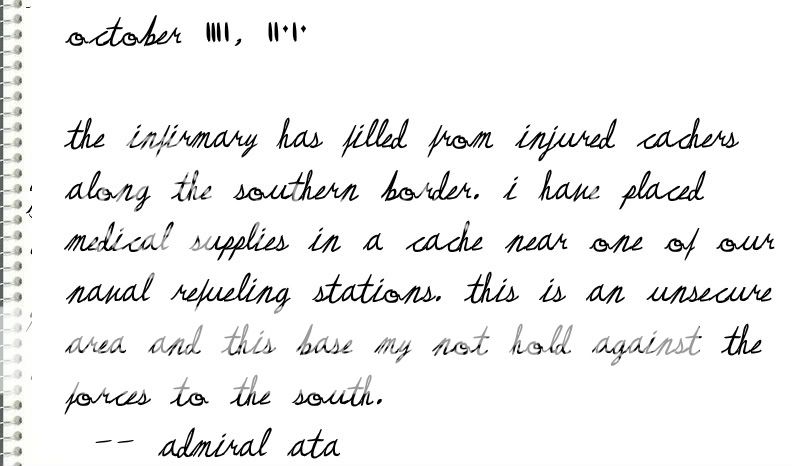 october IIII, II·I·
the infirmary has filled from injured cachers
along the southern border. i have placed
medical supplies in a cache near one of our
naval refueling stations. this is an unsecure
area and this base my not hold against the
forces to the south.
-- admiral ata